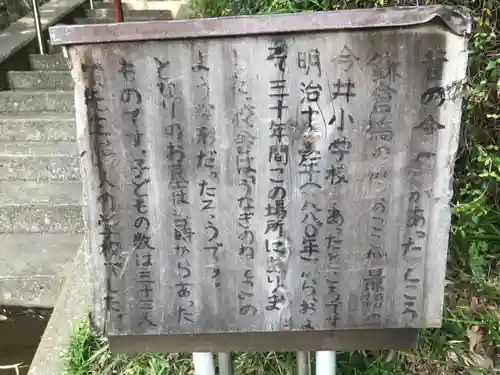 昔の今井小があったところ
鎌倉橋の
今井小学校があったところです
明治十 年(一八八〇年)から、およ
そ三十年間この場所にありま
した。校舎はうなぎのねどこの
ような形だったそうです。
となりのお堂は昔からあった
ものです。子どもの数は三十三人
先生は一人の学校でした